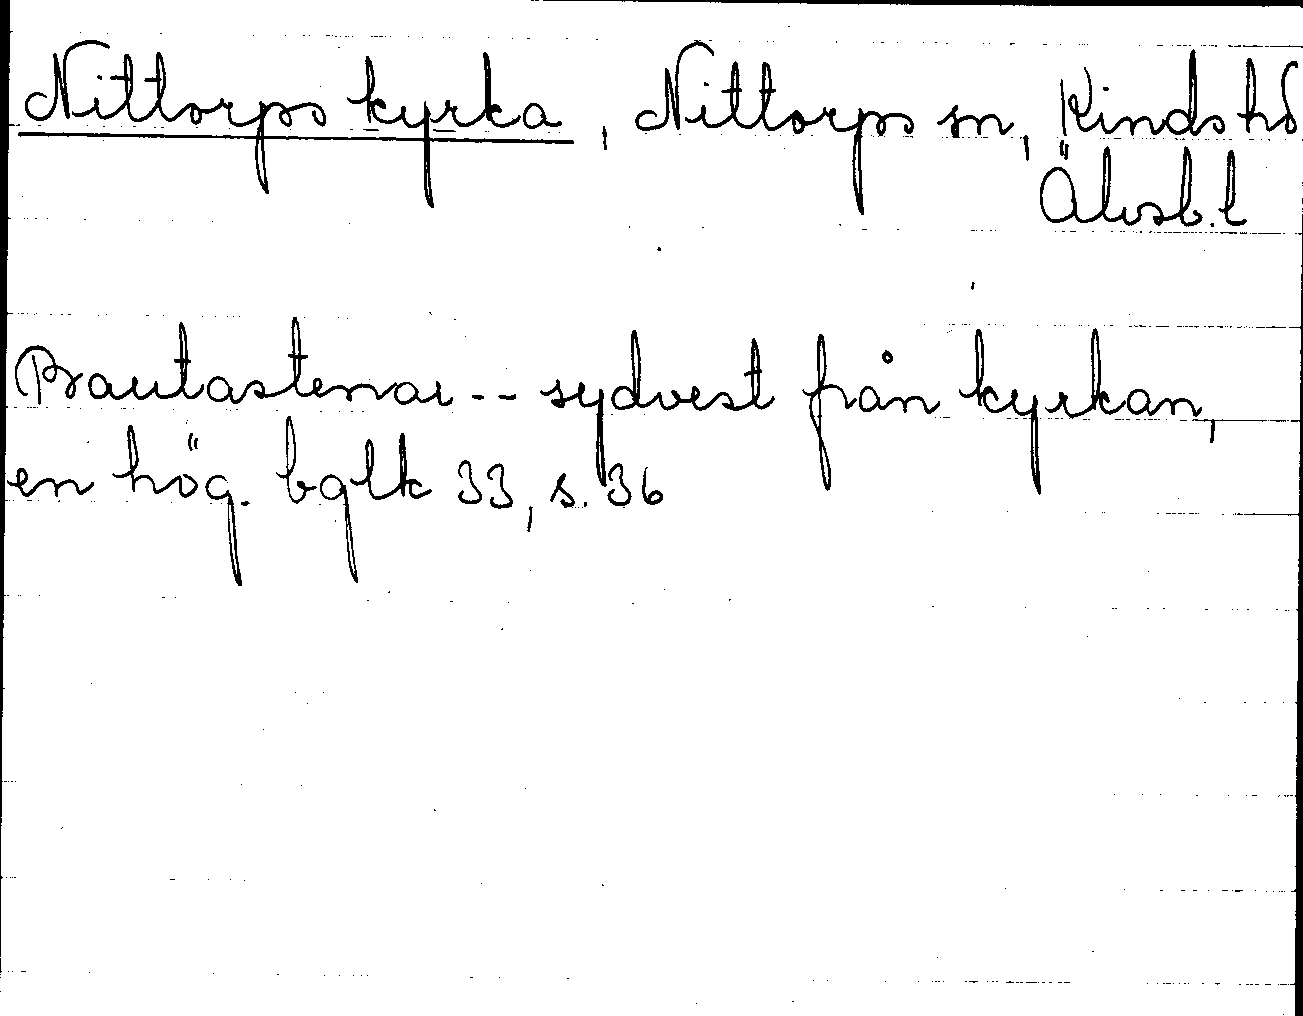 Nittorps kyrka, Nittorps sn, Kinds hd
Älvsb. l
Brautastenar -- sydvest från kyrkan,
en hög. bglk 33, s. 36